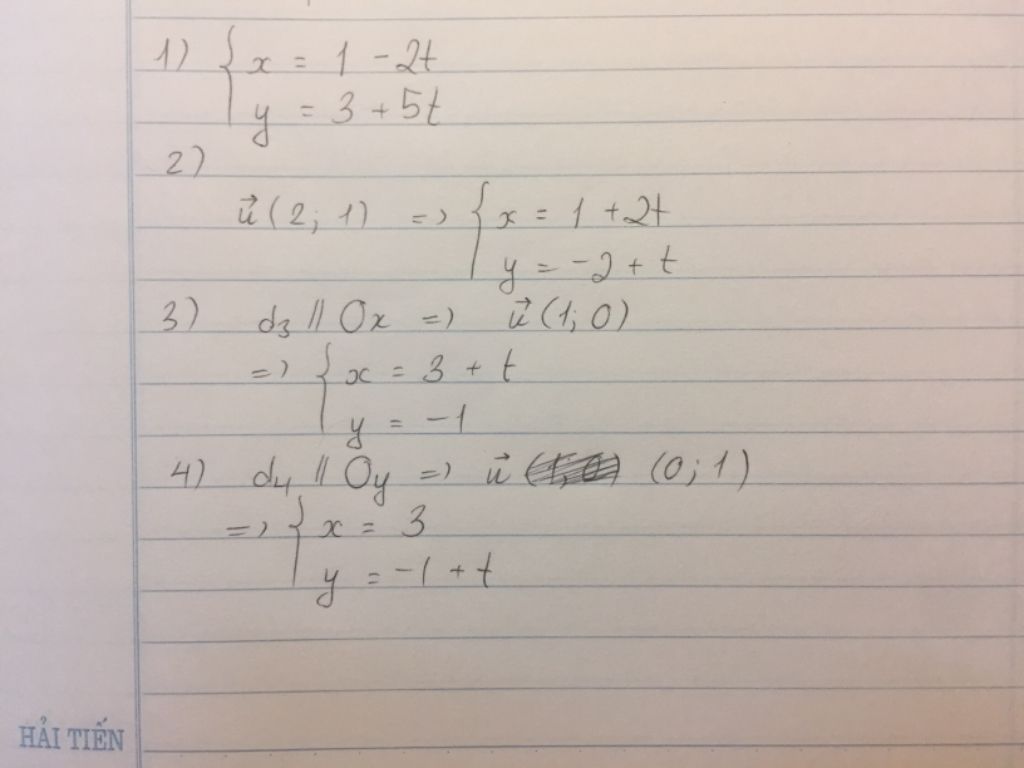 1) { x = 1 - 2t
y = 3 + 5t
2)
u⃗ (2; 1) => { x = 1 + 2t
y = -2 + t
3) d₃ // Ox => u⃗ (1; 0)
=> { x = 3 + t
y = -1
4) d₄ // Oy => u⃗ (0; 1)
=> { x = 3
y = -1 + t
HẢI TIẾN